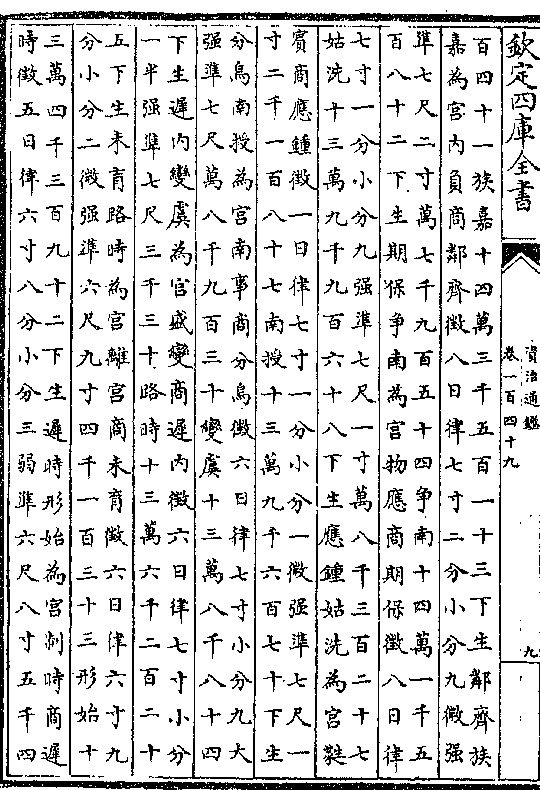 欽定四庫全書
資治通鑑
卷一百四十九
九
百四十一族嘉十四萬三千五百一十三下生鄰齊族
嘉為宮内負商鄰齊徵八日律七寸二分小分九微强
準七尺二寸萬七千九百五十四爭南十四萬一千五
百八十二下生期保爭南為宮物應商期保徵八日律
七寸一分小分九强準七尺一寸萬八千三百二十七
姑洗十三萬九千九百六十八下生應鍾姑洗為宮蕤
賓商應鍾徵一日律七寸一分小分一微强準七尺一
寸二千一百八十七南授十三萬九千六百七十下生
分烏南授為宮南事商分烏徵六日律七寸小分九大
强準七尺萬八千九百三十變虞十三萬八千八十四
下生遲内變虞為宮盛變商遲内徵六日律七寸小分
一半强準七尺三千三十路時十三萬六千二百二十
五下生未育路時為宮離宮商未育徵六日律六寸九
分小分二微强準六尺九寸四千一百三十三形始十
三萬四千三百九十二下生遲時形始為宮制時商遲
時徵五日律六寸八分小分三弱準六尺八寸五千四